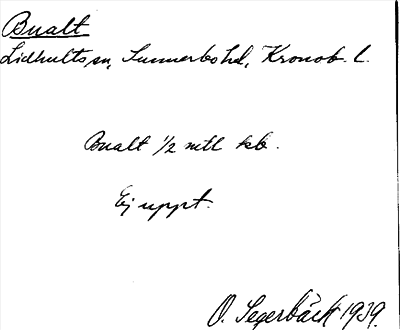 Bualt
Lidhults sn, Sunnerbo hd, Kronob. l.
Bualt 1/2 mtl kb.
Ej uppt.
O. Segerbäck 1939.